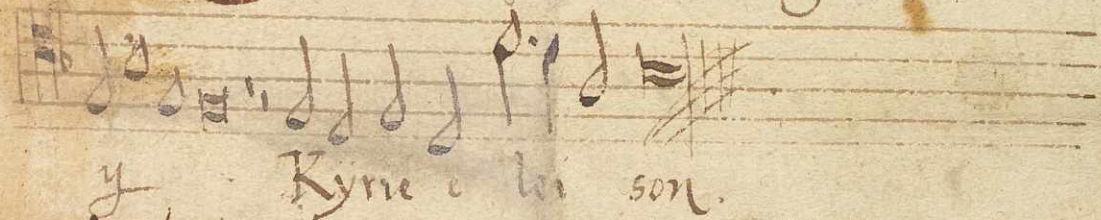 y Kyrie e lei son.